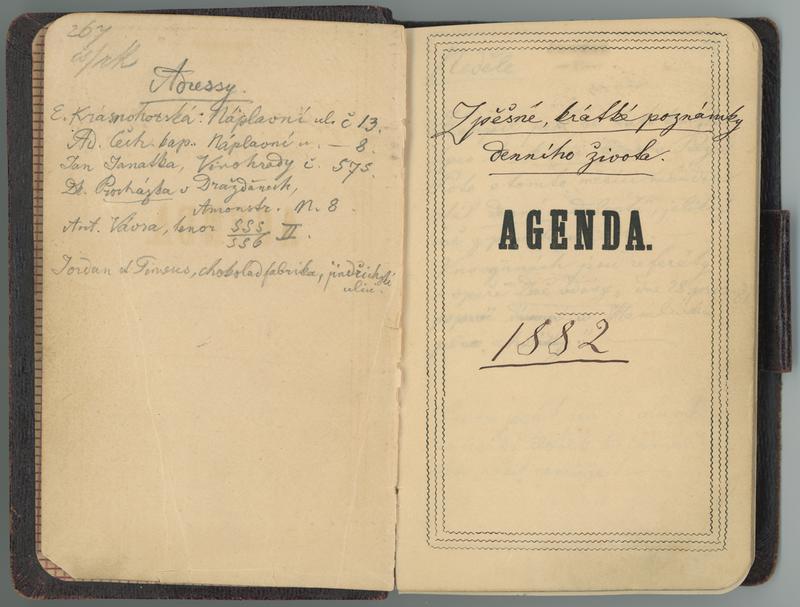 267
Adressy.
E. Krásnohorská: Náplavní ul. č 13.
Ad. Čech. kap. Náplavní u. — 8.
Jan Janatka, Vinohrady č. 575.
Dr. Procházka v Drážďanech,
Amonstr. N. 8
Ant. Vávra, tenor 555/556 II.
Jordan et Timeus, chokolad fabrika, jindřichská
ulice.
Zpěšné, krátké poznámky
denního života.
AGENDA.
1882